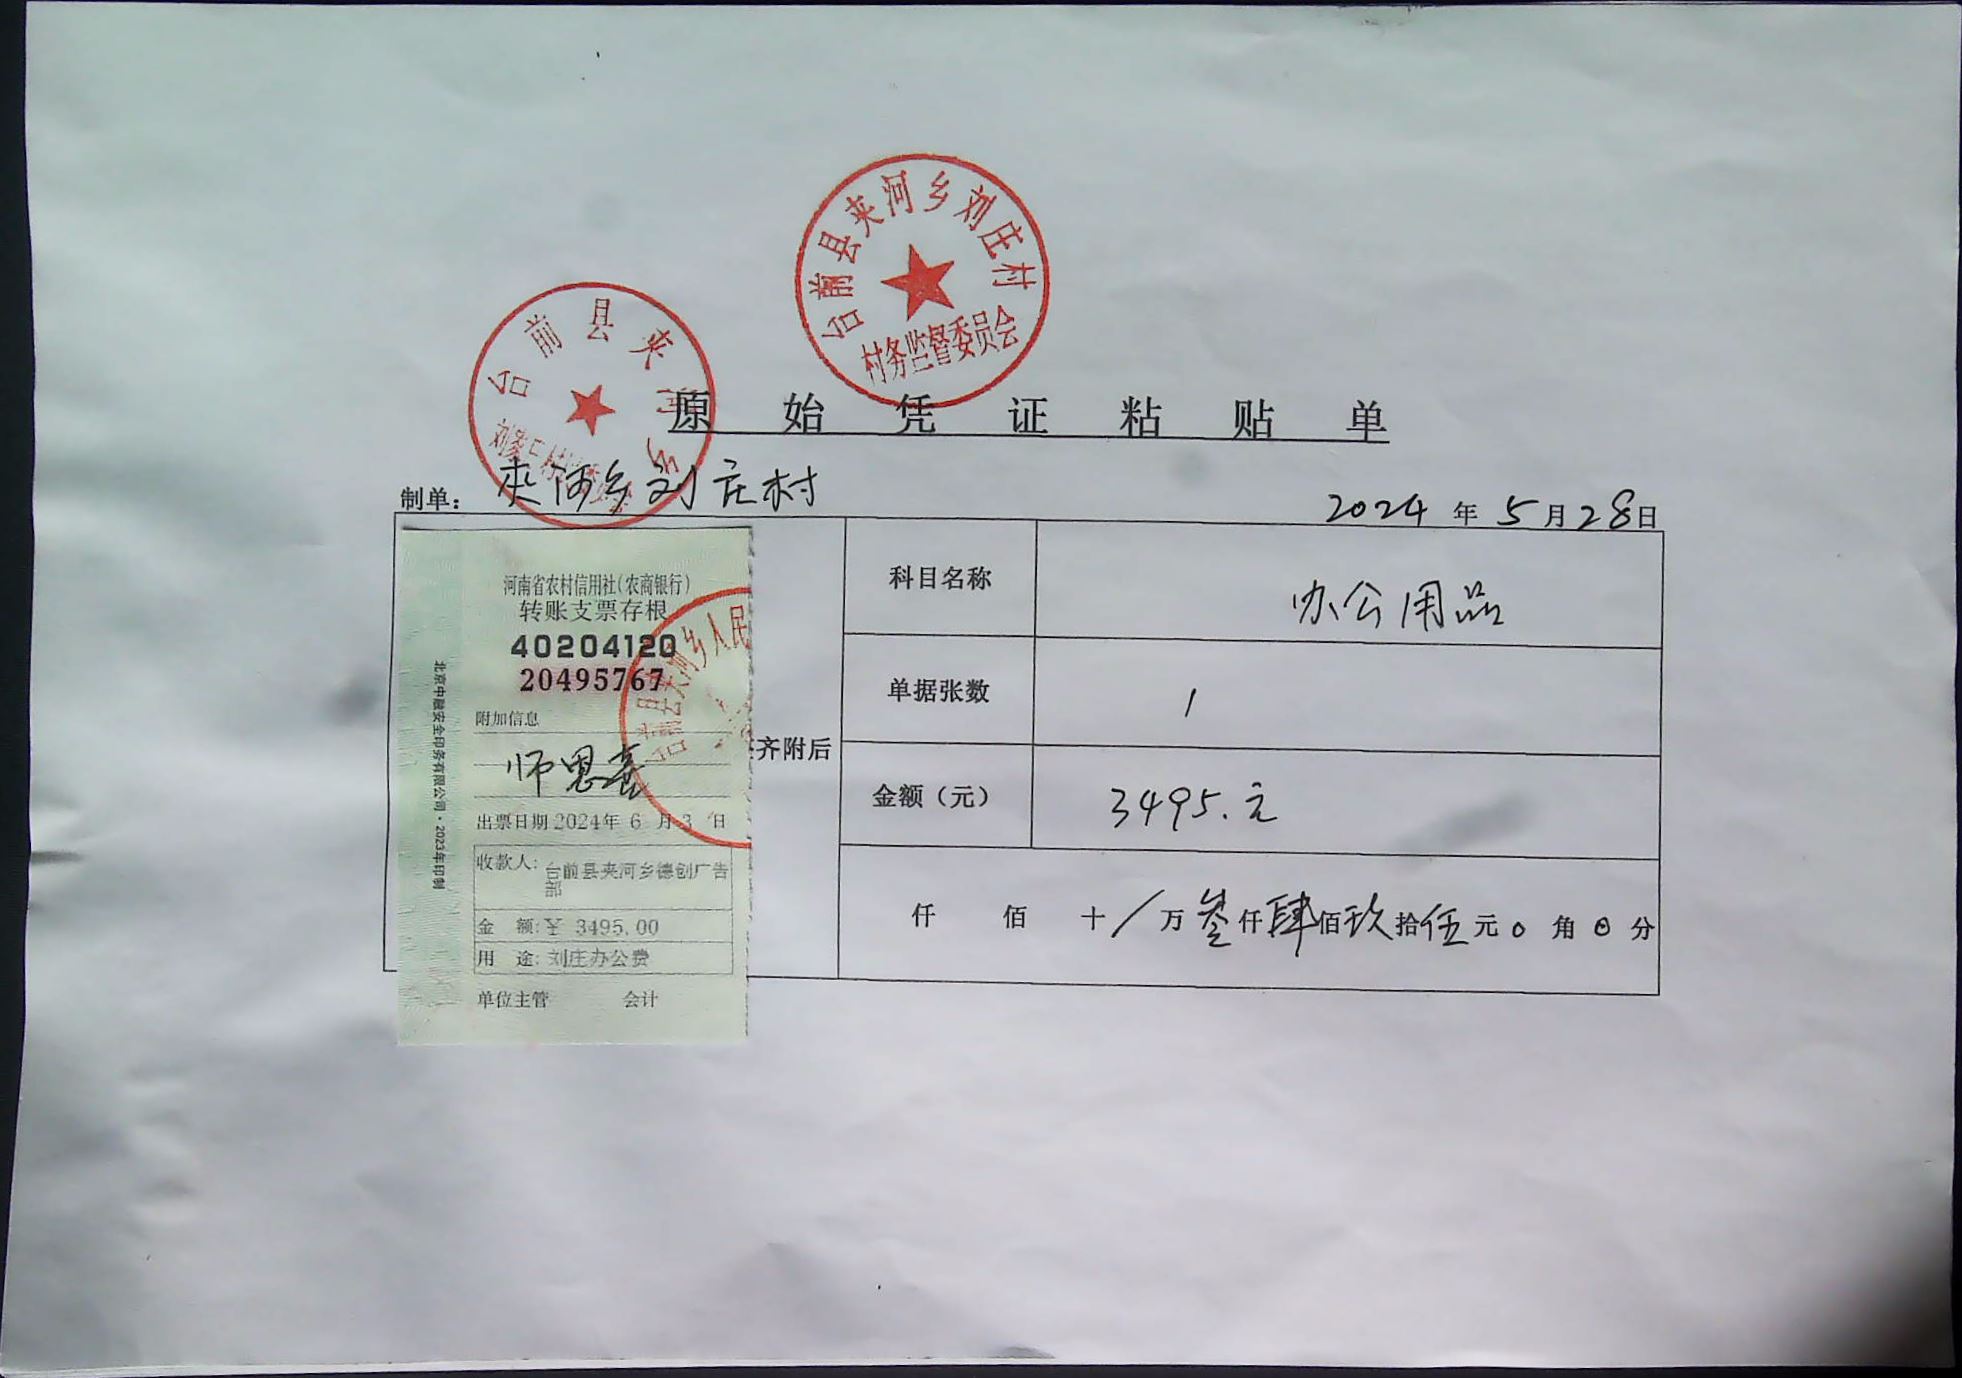 台前县夹河乡刘庄村
村务监督委员会
台前县夹河乡
原始凭证粘贴单
制单：夹河乡刘庄村
2024年5月28日
河南省农村信用社(农商银行)
转账支票存根
40204120
20495767
附加信息
师恩喜
出票日期2024年6月3日
收款人：台前县夹河乡德创广告
部
金 额：¥ 3495.00
用 途：刘庄办公费
单位主管 会计
北京中融安全印务有限公司·2023年印制
台前县夹河乡人民
齐附后
科目名称 办公用品
单据张数 1
金额（元） 3495.元
仟 佰 十/万叁仟肆佰玖拾伍元0角0分